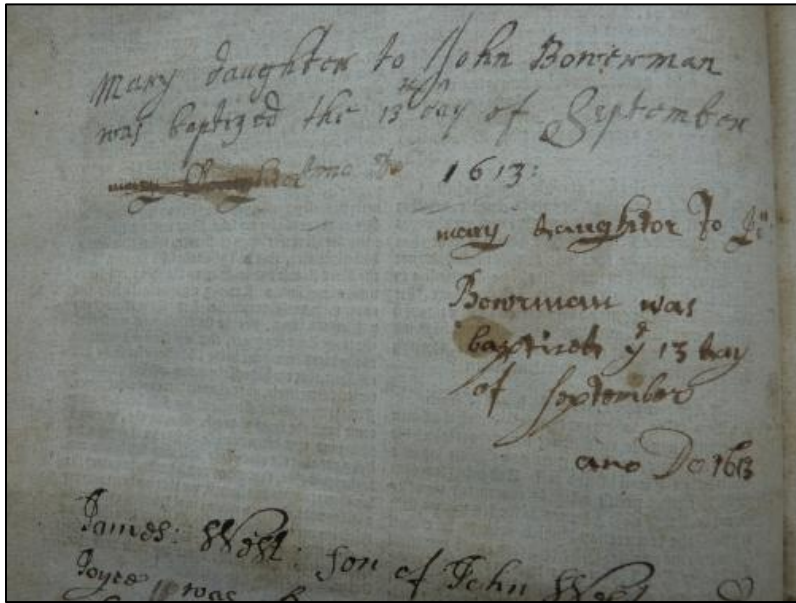 Mary daughter to John Bowerman
was baptized the 13th day of September
mary daughter Ano Do 1613:
mary daughter to Jon
Bowrman was
baptised ye 13 day
of september
ano Do 1613
James: West: son of John West
Joyce was